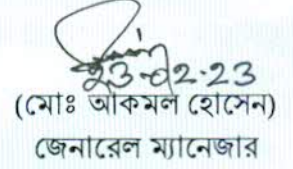 ২3-02-23
(মোঃ আকমল হোসেন)
জেনারেল ম্যানেজার